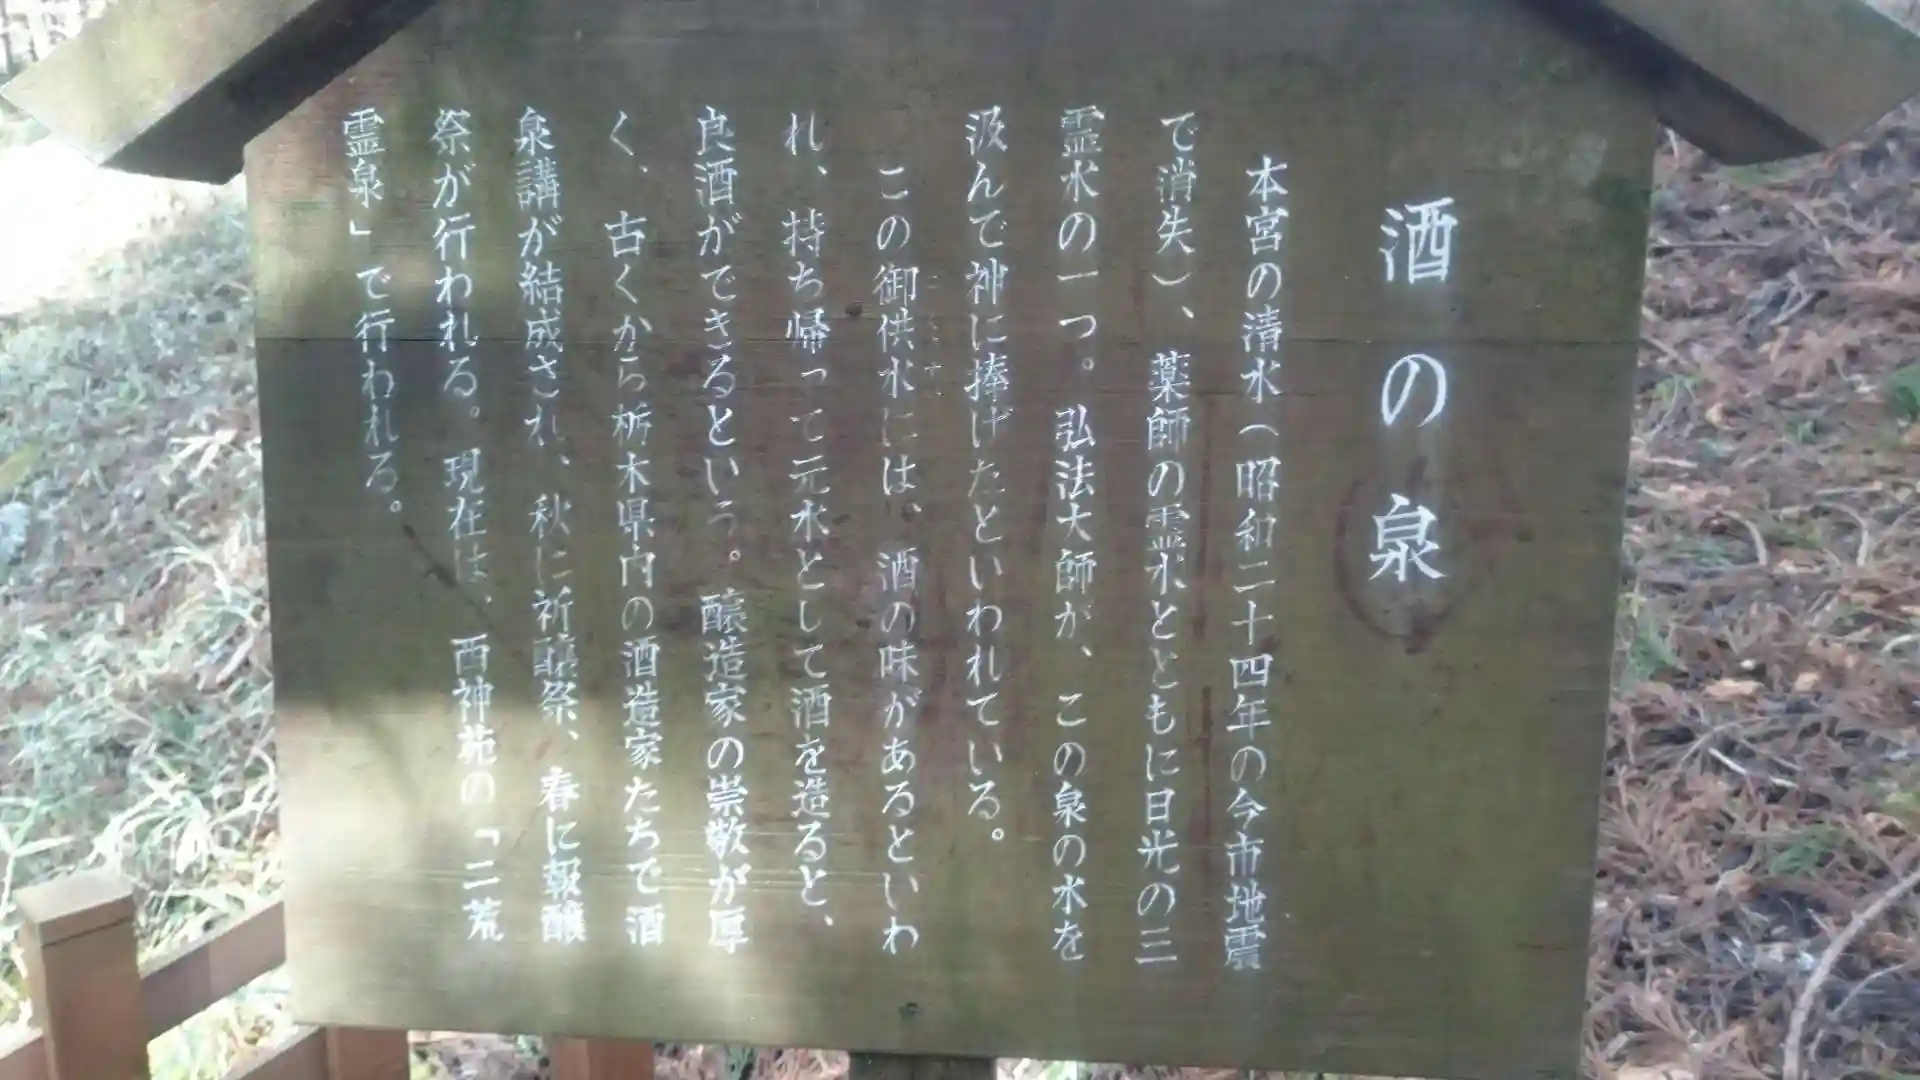 酒の泉
本宮の清水（昭和二十四年の今市地震
で消失）、薬師の霊水とともに日光の三
霊水の一つ。弘法大師が、この泉の水を
汲んで神に捧げたといわれている。
この御供水には、酒の味があるといわ
れ、持ち帰って元水として酒を造ると、
良酒ができるという。醸造家の崇敬が厚
く、古くから栃木県内の酒造家たちで酒
泉講が結成され、秋に祈醸祭、春に報醸
祭が行われる。現在は、西神苑の「二荒
霊泉」で行われる。